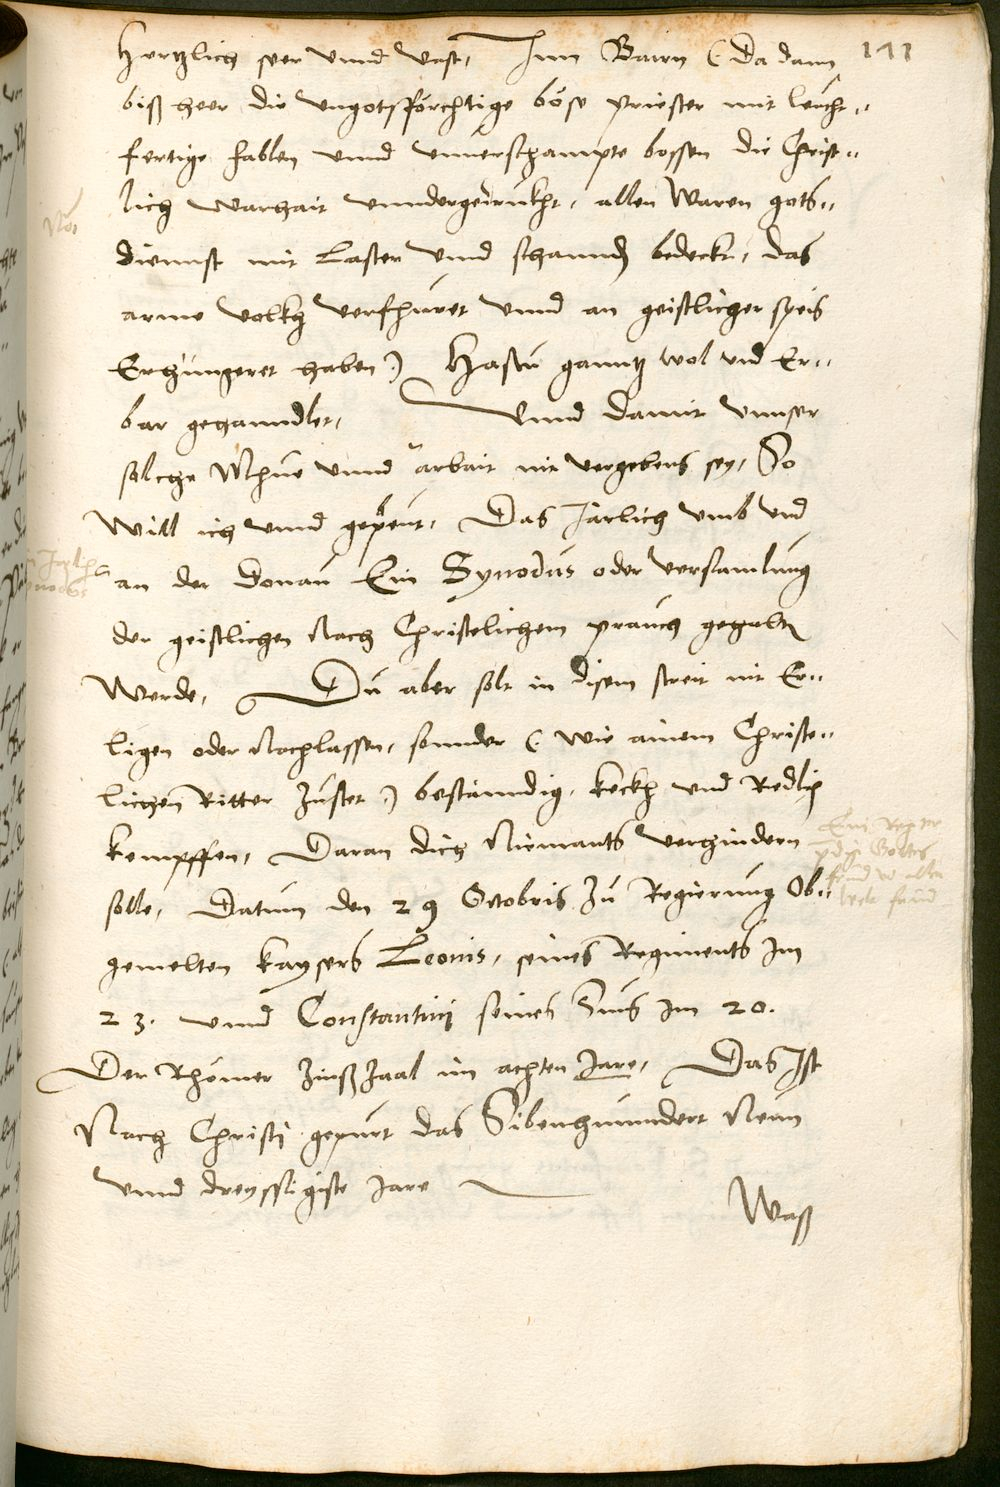 111
Hertzlich seer unnd vast, Inn Bairn (: Da dann
biß heer die ungotsförchtige böse priester mit leicht=
fertige fablen unnd unnerschampte bossen die Christ=
lich warhait unndergedrukht, allen Waren gots=
diennst mit Laster unnd schannd bedeckt, das
arme volkh verfhüret unnd an geistlicher speis
Erhungeret haben :) Hastu ganntz wol und Er=
bar gehanndlet, Unnd damit unnser
solche Mhüe unnd arbait nit vergebens sey, So
Will ich unnd gepeut, Das Järlich umb und
an der Donau Ein Synodus oder versamlung
der geistlichen Nach Christelichem prauch gehalten
Werde, Du aber solt in disem streit nit Er=
ligen oder Nachlassen, sonnder (: wie ainem Christe=
lichen Ritter Zustet :) bestänndig, keckh und Redlich
kempffen, Daran dich Niemants verhindern
solle, Datum den 29 Octobris Zu Regierung Ob=
gemelten kaysers Leonis, seines Regiments Im
23. unnd Constantinj seines Suns Im 20.
Der Rhömer Zinßzaal im achten Jare, Das Ist
Nach Christj gepurt das Sibenhunndert Neun
unnd dreyssigiste Jare
Waß